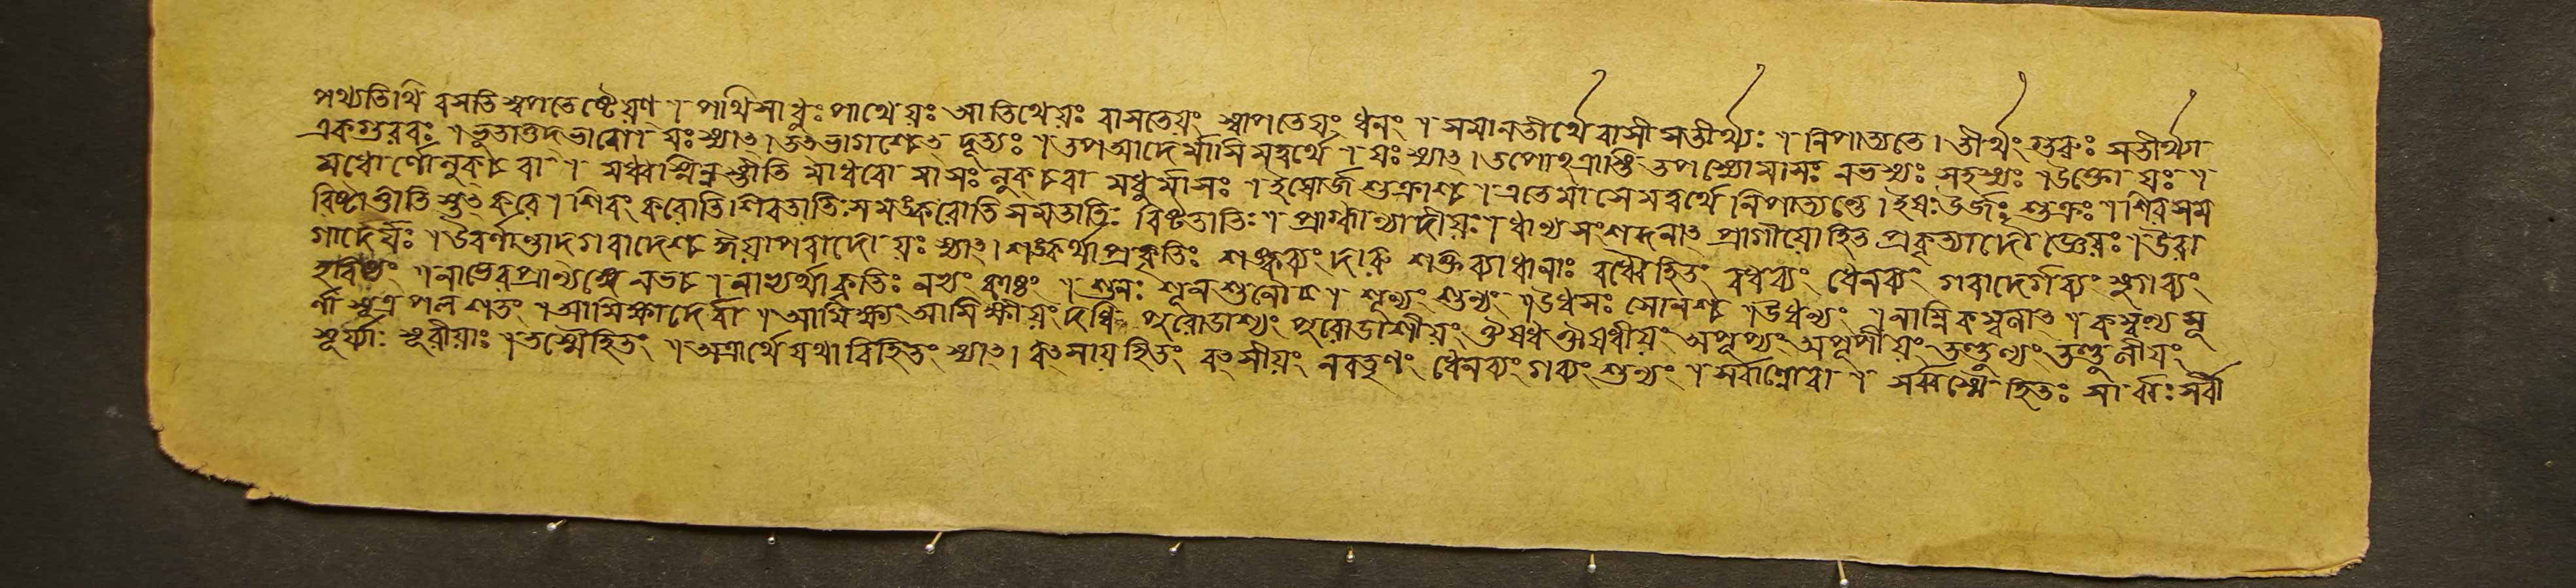 পথ্যতিথি বসতি স্বপতে ষ্টেয়ণ । পাথিসাধুঃ পাথেয়ঃ আতিথেয়ঃ বাসতেয়ং স্বাপতেয়ং ধনং । সমানতীর্থে বাসী সতীর্থ্যঃ । নিপাত্যতে । তীর্থং গুরুঃ সতীর্থ্যা
একগুরবঃ । ভূতাত্তদভাবো যঃ স্যাৎ । ততভাগশেচৎ দূত্যঃ । তপ আদের্মাসি মত্বর্থে । যঃ স্যাৎ । তপোহত্রাস্তি তপস্যো মাসঃ নভস্যঃ সহস্যঃ । উক্তো যঃ ।
মধোর্ণো নুক্ চ বা । মধ্বস্মিন্নস্তীতি মাধবো মাসঃ নুক্ চ বা মধুর্মাসঃ । ইষোর্জ শুক্রাশ্চ । এতে মাসে মত্বর্থে নিপাত্যন্তে । ইষঃ ঊর্জঃ শুক্রঃ । শিব সম
রিষ্টাত্তাতি স্তৎ করে । শিবং করোতি শিবতাতিঃ সমঙ্করোতি সমতাতিঃ রিষ্টতাতিঃ । প্রাগ্ধান্যাদীয়ঃ । ধান্য সংশব্দনাৎ প্রাগীয়োহিত প্রকৃত্যাদৌ জ্ঞেয়ঃ । উবা
গাদের্যঃ । উবর্ণান্তাদ্গবাদেশ্চ ঈয়াপবাদো যঃ স্যাৎ । শঙ্ক্বর্থাপ্রকৃতিঃ শঙ্কব্যং দারু শক্তব্যাধানাঃ বধ্বৈহিতং বধব্যং ধেনব্যং গবাদের্গব্যং স্রুগব্যং
হবিষ্যং । নাভেরপ্রাণ্যঙ্গে নভচ । নাভ্যর্থাকৃতিঃ নভ্যং কাষ্ঠং । শুনঃ শূনশুনৌ চ । শূন্যং শুন্যং । উধসঃ সোনশ্চ । উধন্যং । নাম্নি কম্বলাৎ । কম্বল্য মূ
র্ণা স্যুত্র পলশতং । আমিক্ষাদের্বা । আমিক্ষ্যং আমিক্ষীয়ং দধি পুরোডাশ্যং পুরোডাশীয়ং ঔষধ ঔষধীয়ং অপূপ্যং অপূপীয়ং তণ্ডুল্যং তণ্ডুলীয়ং
সূর্য্যাঃ সূরীয়াঃ । তস্মৈহিতং । অত্রার্থে যথা বিহিতং স্যাৎ । বৎসায় হিতং বৎসীয়ং নবতৃণং ধেনব্যং গব্যং শুন্যং । সর্বাণ্নোবা । সর্বস্মৈ হিতঃ সার্বঃ সর্বী